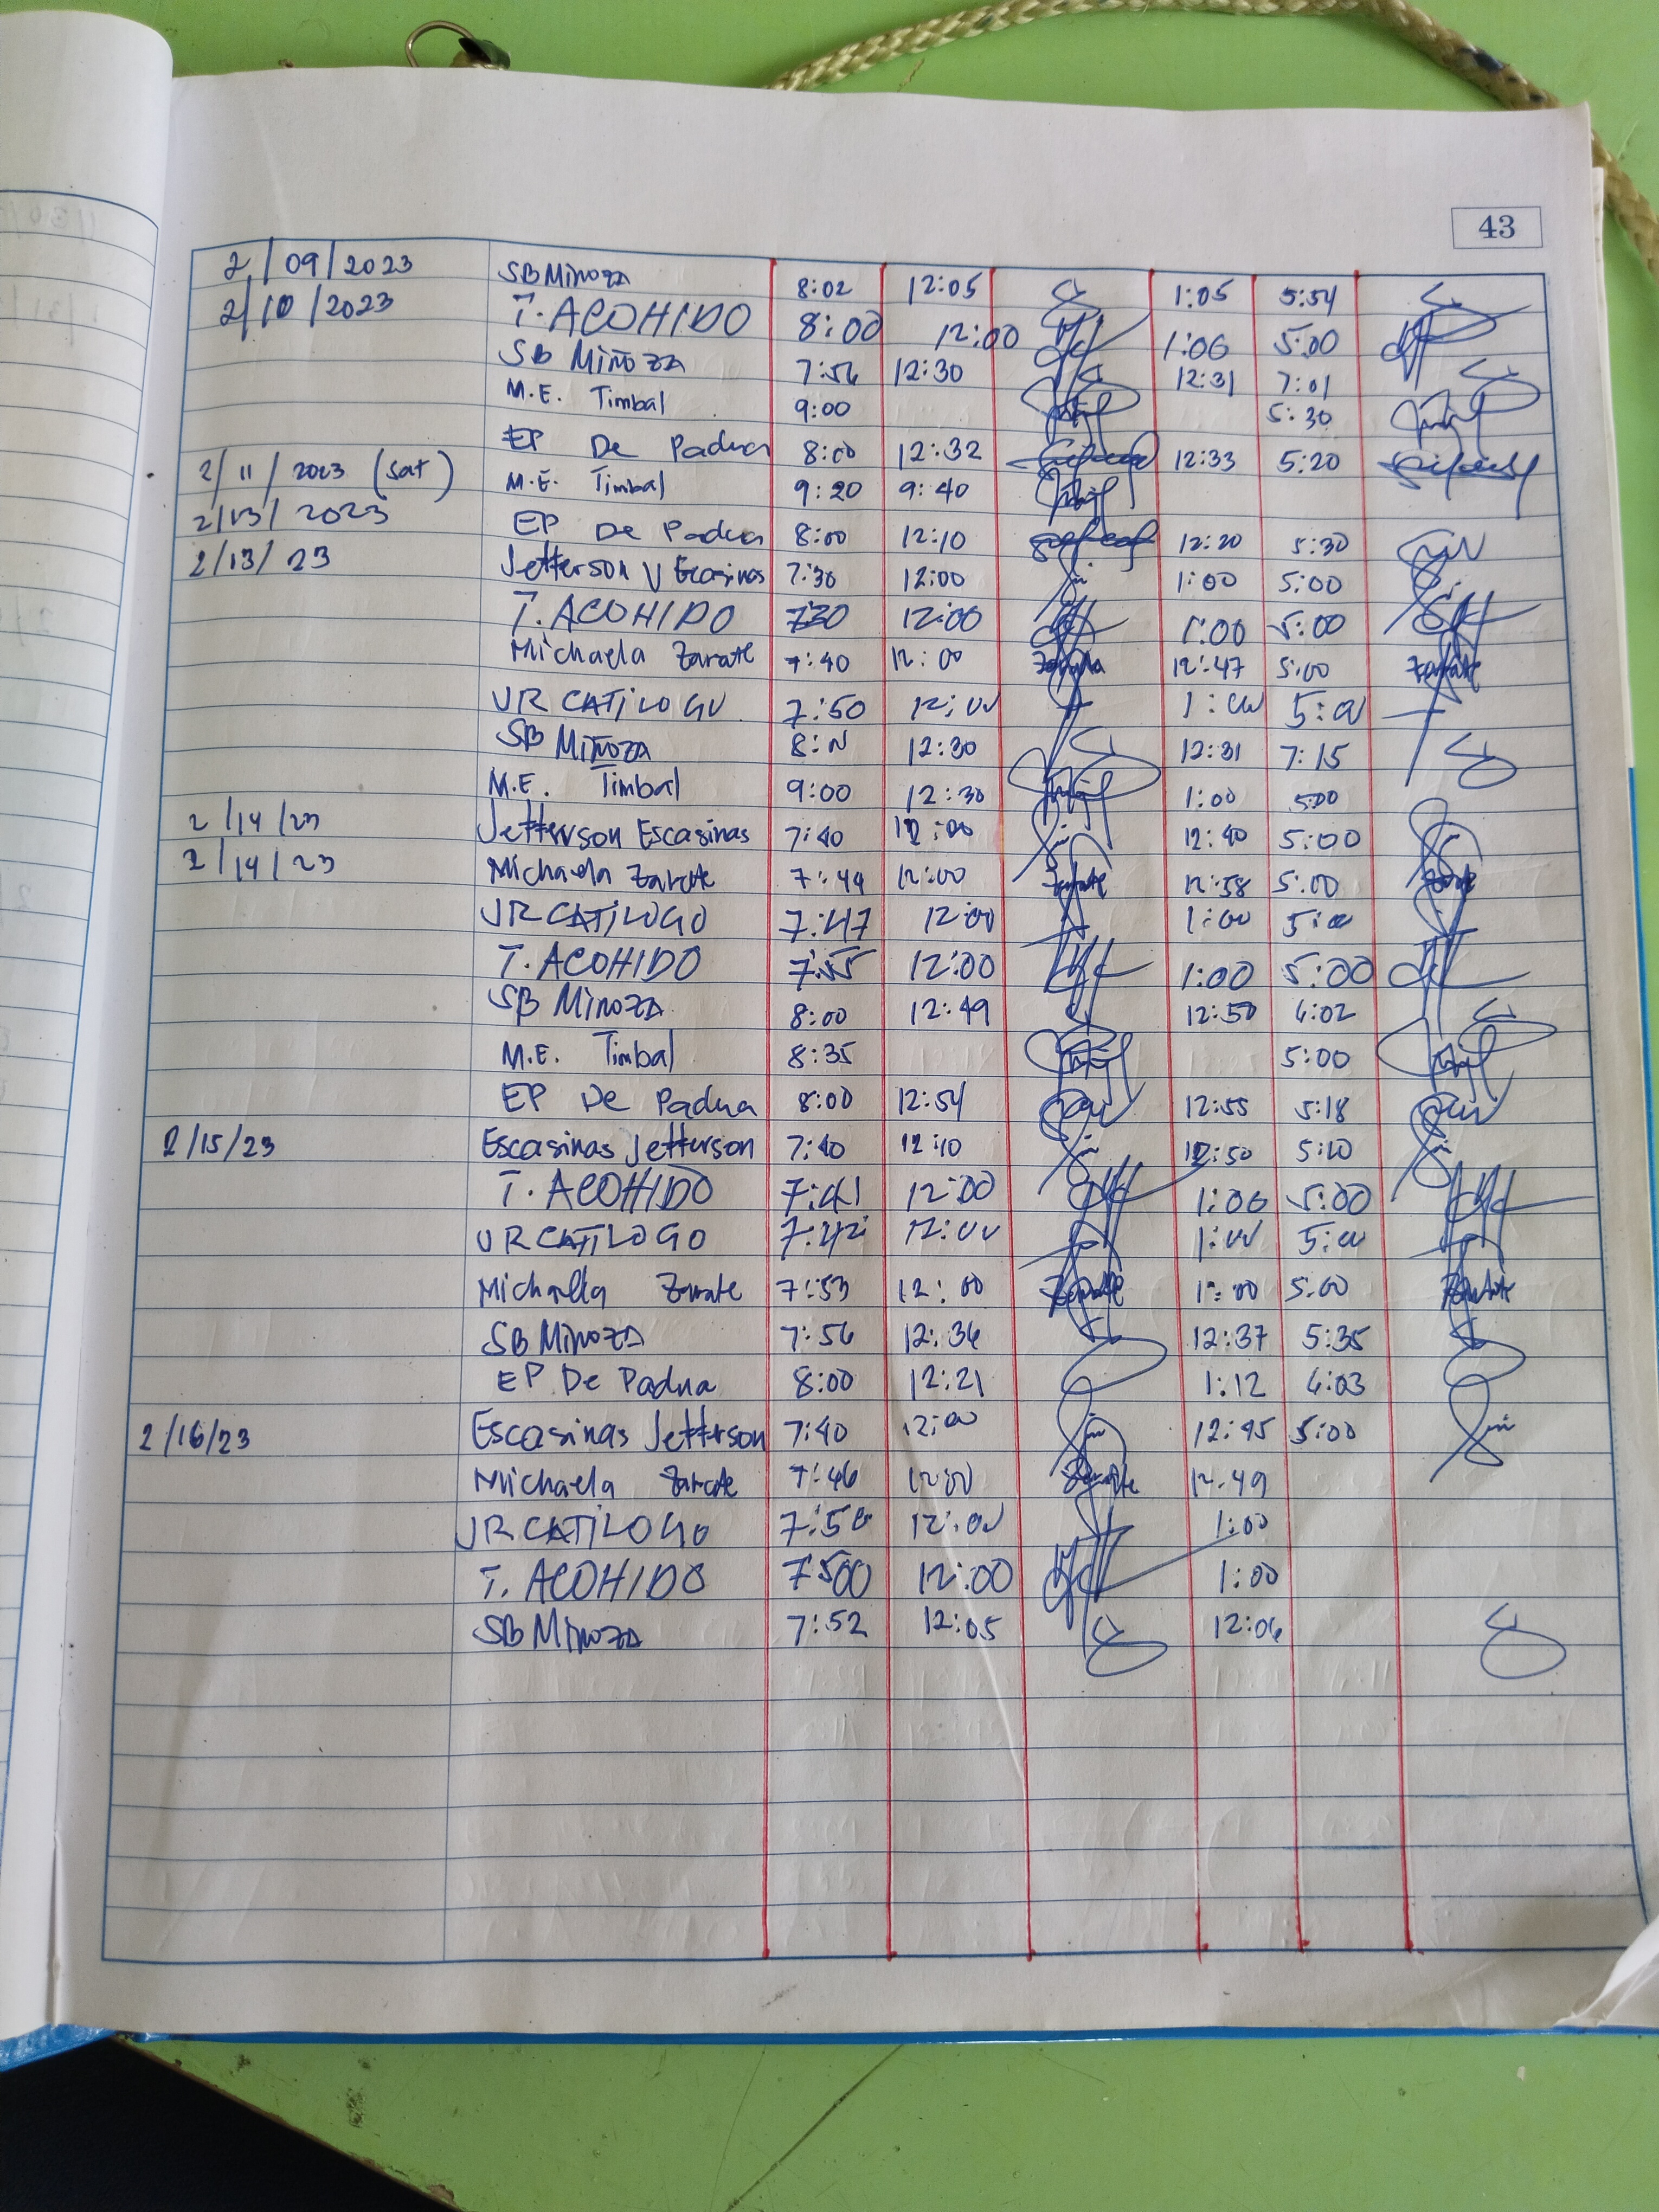 43
2/09/2023 SB Minoza 8:02 12:05 1:05 5:54
2/10/2023 T. ACOHIDO 8:00 12:00 1:00 5:00
SB Miñoza 7:56 12:30 12:31 7:01
M.E. Timbal 9:00 5:30
EP De Padua 8:00 12:32 12:33 5:20
2/11/2023 (Sat) M.E. Timbal 9:20 9:40
2/13/2023 EP De Padua 8:00 12:10 12:20 5:30
2/13/23 Jefferson V Escasinas 7:30 12:00 1:00 5:00
T. ACOHIDO 7:30 12:00 1:00 5:00
Michaela Zarate 7:40 12:00 Zarate 12:47 5:00 Zarate
JR CATILOGO 7:50 12:00 1:00 5:00
SB Miñoza 12:30 12:31 7:15
M.E. Timbal 9:00 12:30 1:00 5:00
2/14/23 Jefferson Escasinas 7:40 12:00 12:40 5:00
2/14/23 Michaela Zarate 7:44 12:00 Zarate 12:58 5:00
JR CATILOGO 7:47 12:00 1:00 5:00
T. ACOHIDO 7:55 12:00 1:00 5:00
SB Minoza 8:00 12:49 12:50 6:02
M.E. Timbal 8:35 5:00
EP De Padua 8:00 12:54 12:55 5:18
2/15/23 Escasinas Jefferson 7:40 12:10 12:50 5:10
T. ACOHIDO 7:41 12:00 1:00 5:00
JR CATILOGO 7:42 12:00 1:00 5:00
Michaella Zarate 7:53 12:00 Zarate 1:00 5:00 Zarate
SB Minoza 7:56 12:36 12:37 5:35
EP De Padua 8:00 12:21 1:12 6:03
2/16/23 Escasinas Jefferson 7:40 12:00 12:45 5:00
Michaela Zarate 7:46 12:00 Zarate 12:49
JR CATILOGO 7:50 12:00 1:00
T. ACOHIDO 12:00 1:00
SB Minoza 7:52 12:05 12:06